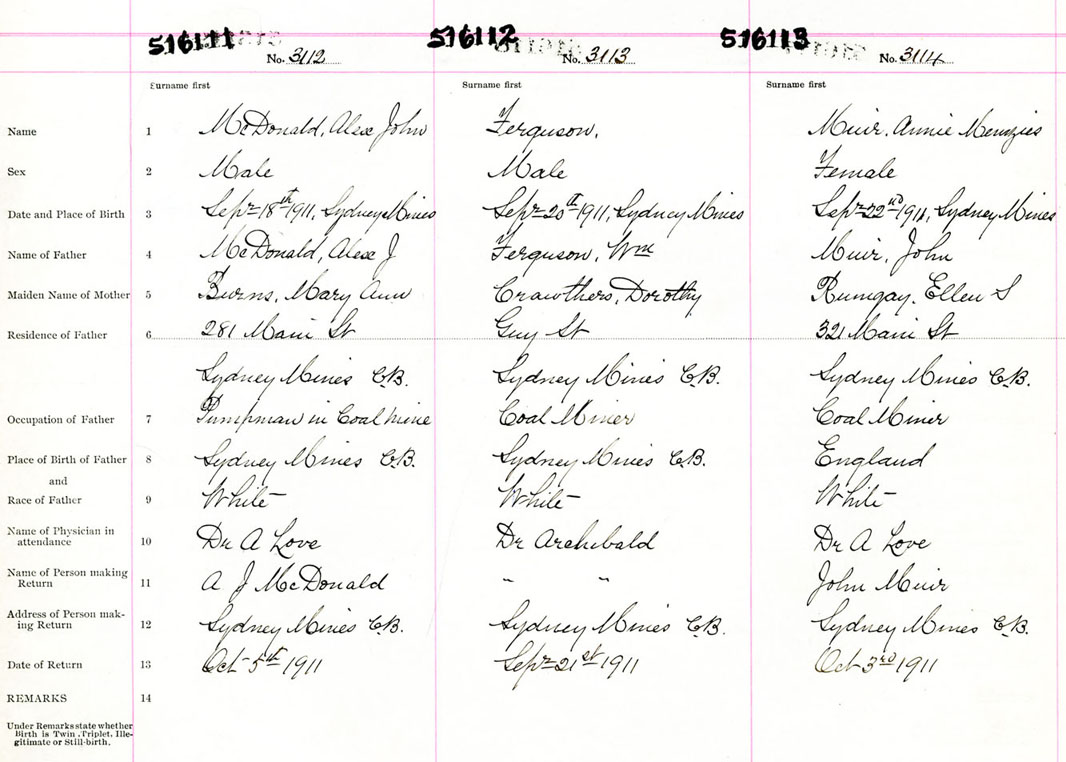 516111 516112 516113
No. 3112 No. 3113 No. 3114
Surname first Surname first Surname first
Name 1 McDonald, Alex John Ferguson, Muir, Annie Menzies
Sex 2 Male Male Female
Date and Place of Birth 3 Sept 18th 1911, Sydney Mines Sept 20th 1911, Sydney Mines Sept 22nd 1911, Sydney Mines
Name of Father 4 McDonald, Alex J Ferguson, Wm Muir, John
Maiden Name of Mother 5 Burns, Mary Ann Crawthers, Dorothy Rumgay, Ellen S
Residence of Father 6 281 Main St Guy St 321 Main St
Sydney Mines C.B. Sydney Mines C.B. Sydney Mines C.B.
Occupation of Father 7 Pumpman in Coal mine Coal Miner Coal Miner
Place of Birth of Father 8 Sydney Mines C.B. Sydney Mines C.B. England
and
Race of Father 9 White White White
Name of Physician in
attendance 10 Dr A Love Dr Archibald Dr A Love
Name of Person making
Return 11 A J McDonald " " John Muir
Address of Person mak-
ing Return 12 Sydney Mines C.B. Sydney Mines C.B. Sydney Mines C.B.
Date of Return 13 Oct 5th 1911 Sept 21st 1911 Oct 3rd 1911
REMARKS 14
Under Remarks state whether
Birth is Twin, Triplet, Ille-
gitimate or Still-birth.